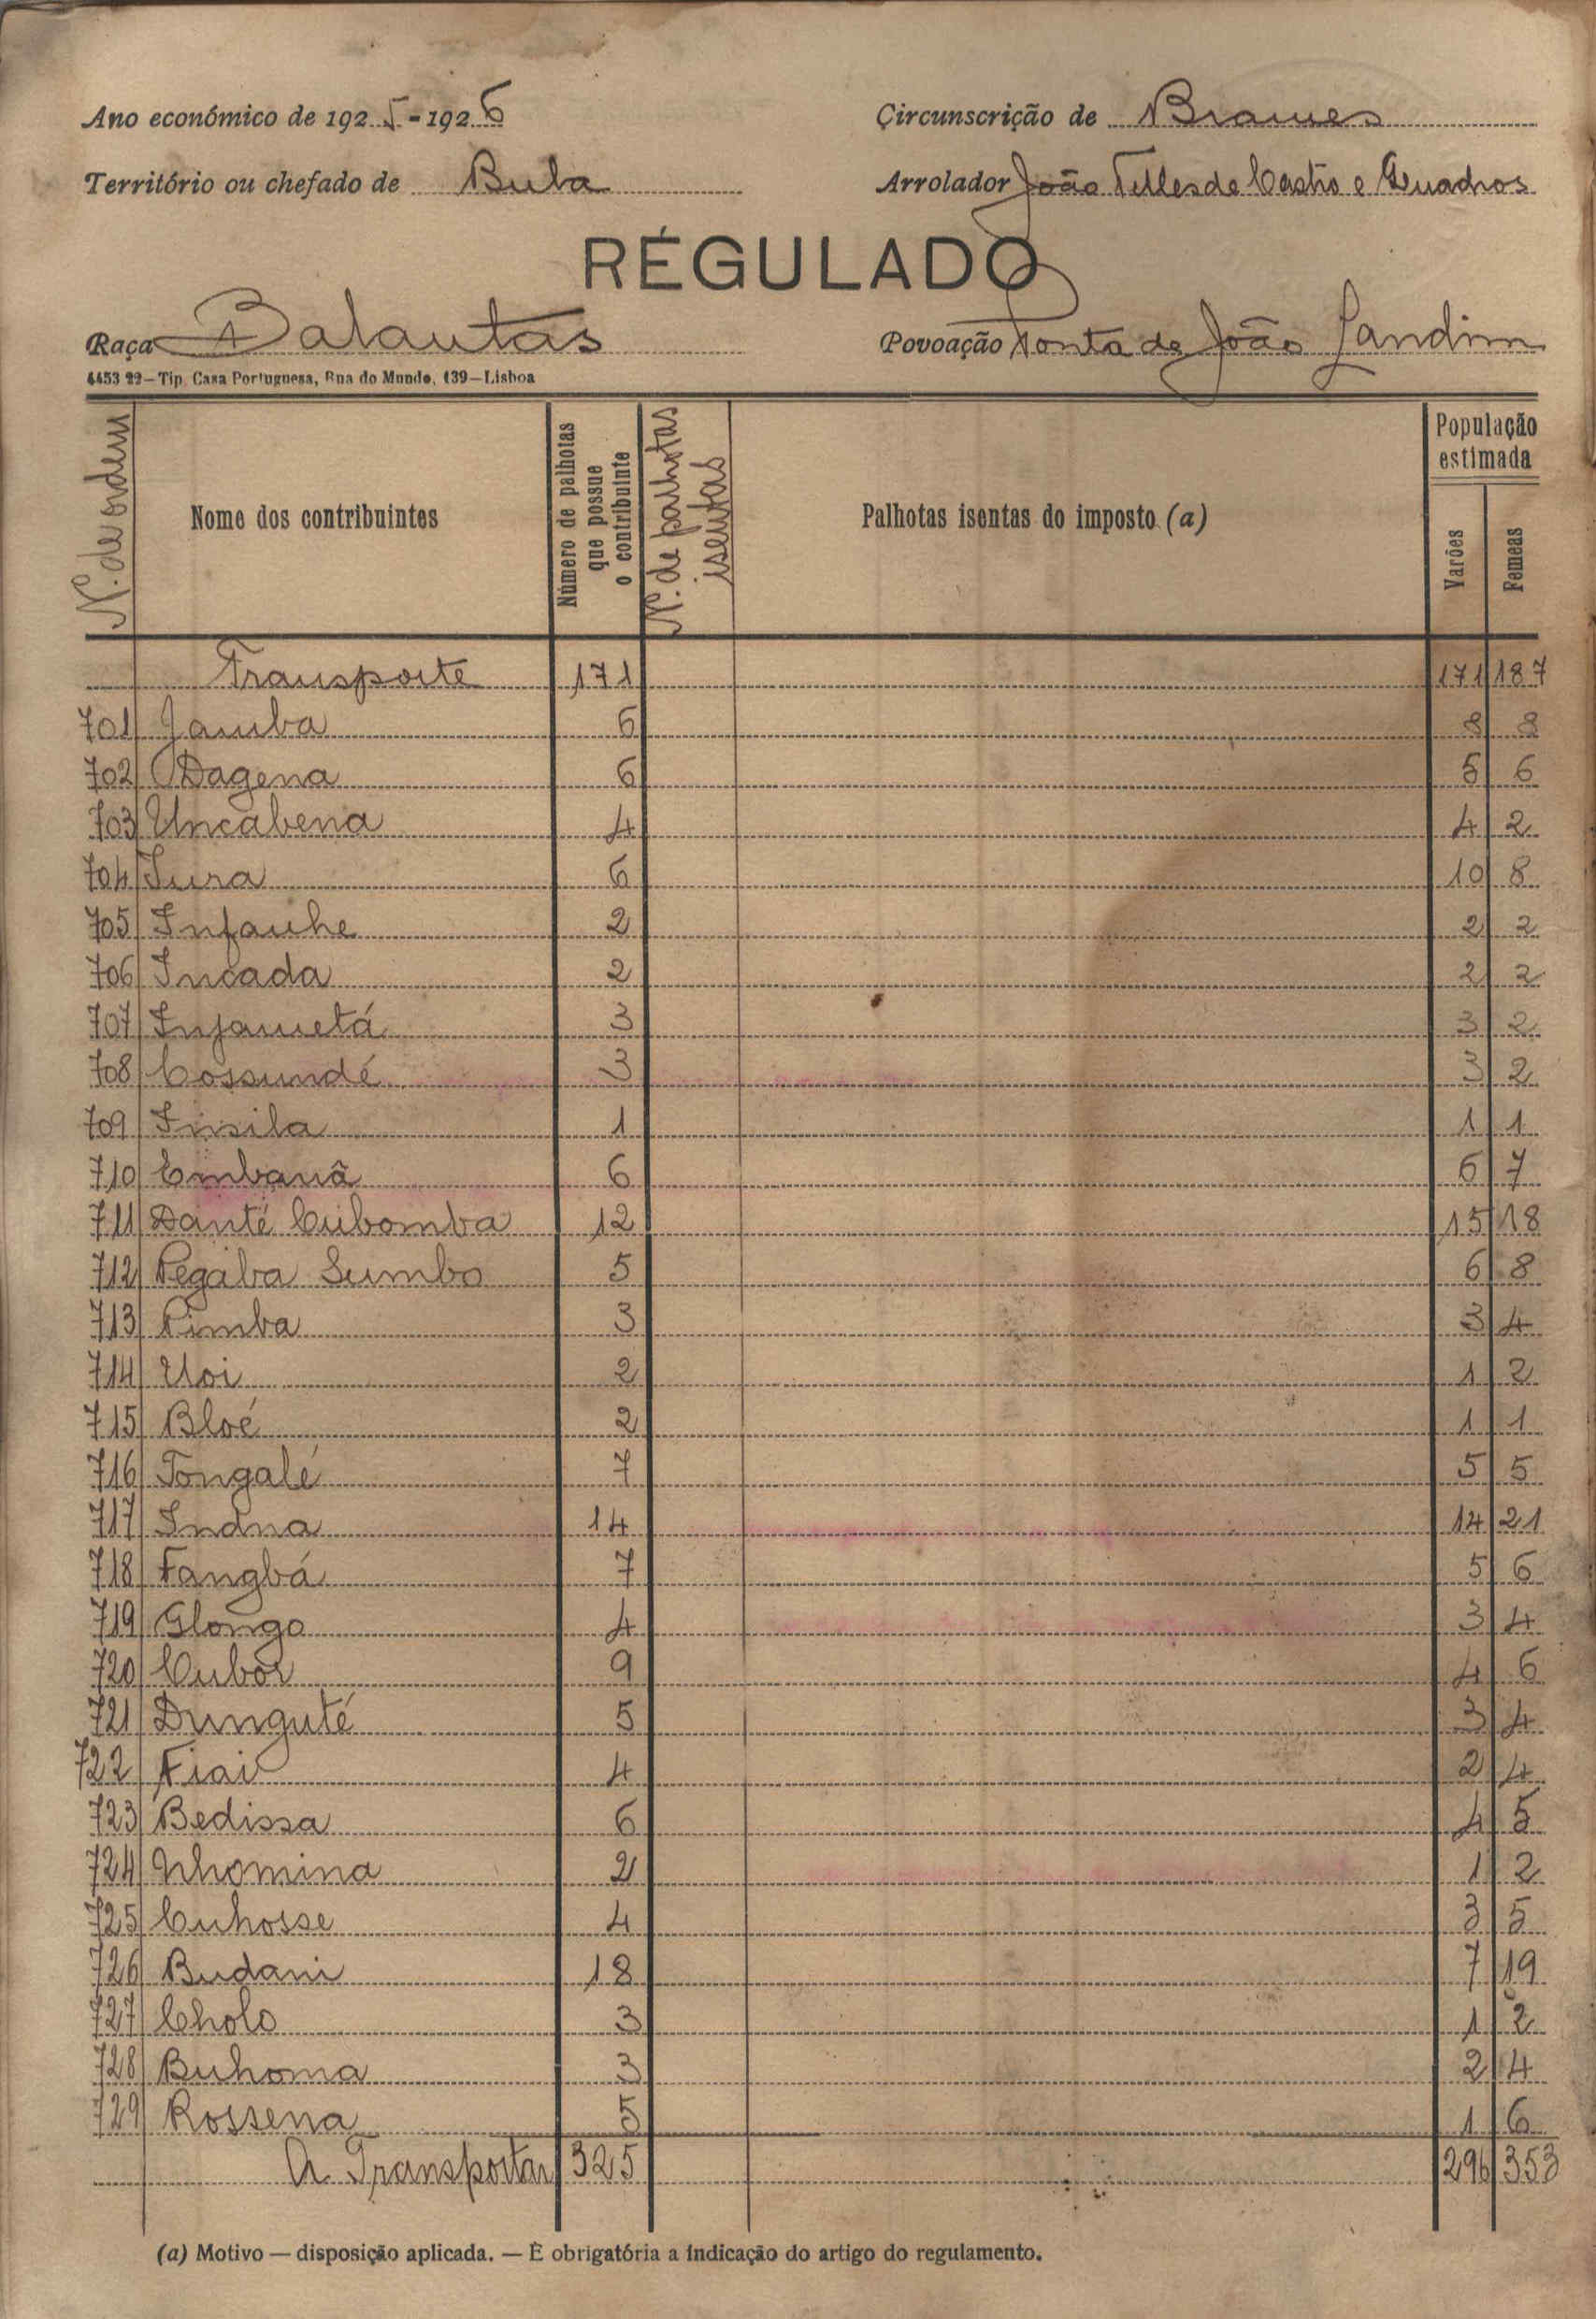 Ano económico de 1925-1926
Circunscrição de Brames
Território ou chefado de Buba
Arrolador João Telles de Castro e Quadros
RÉGULADO
Raça Balantas
Povoação Ponta de João Landim
4453 22—Tip. Casa Portuguesa, Rua do Mundo, 139—Lisboa
N. de ordem
Nome dos contribuintes
Número de palhotas que possue o contribuinte
N. de palhotas isentas
Palhotas isentas do imposto (a)
População estimada
Varões
Femeas
Transporte 171 171 187
701 Jamba 6 8 8
702 Dagena 6 5 6
703 Uncabena 4 4 2
704 Tura 6 10 8
705 Infanhe 2 2 2
706 Incada 2 2 2
707 Injametá 3 3 2
708 Cossundé 3 3 2
709 Insila 1 1 1
710 Embanã 6 6 7
711 Danté Cubomba 12 15 18
712 Pegaba Sumbo 5 6 8
713 Pimba 3 3 4
714 Uoi 2 1 2
715 Bloé 2 1 1
716 Tongalé 7 5 5
717 Indna 14 14 21
718 Fangbá 7 5 6
719 Glongo 4 3 4
720 Cubor 9 4 6
721 Dunguté 5 3 4
722 Fiai 4 2 4
723 Bedissa 6 4 5
724 Nhomina 2 1 2
725 Cuhosse 4 3 5
726 Budani 18 7 19
727 Cholo 3 1 2
728 Buhoma 3 2 4
729 Rossena 5 1 6
A Transportar 325 296 353
(a) Motivo — disposição aplicada. — É obrigatória a indicação do artigo do regulamento.